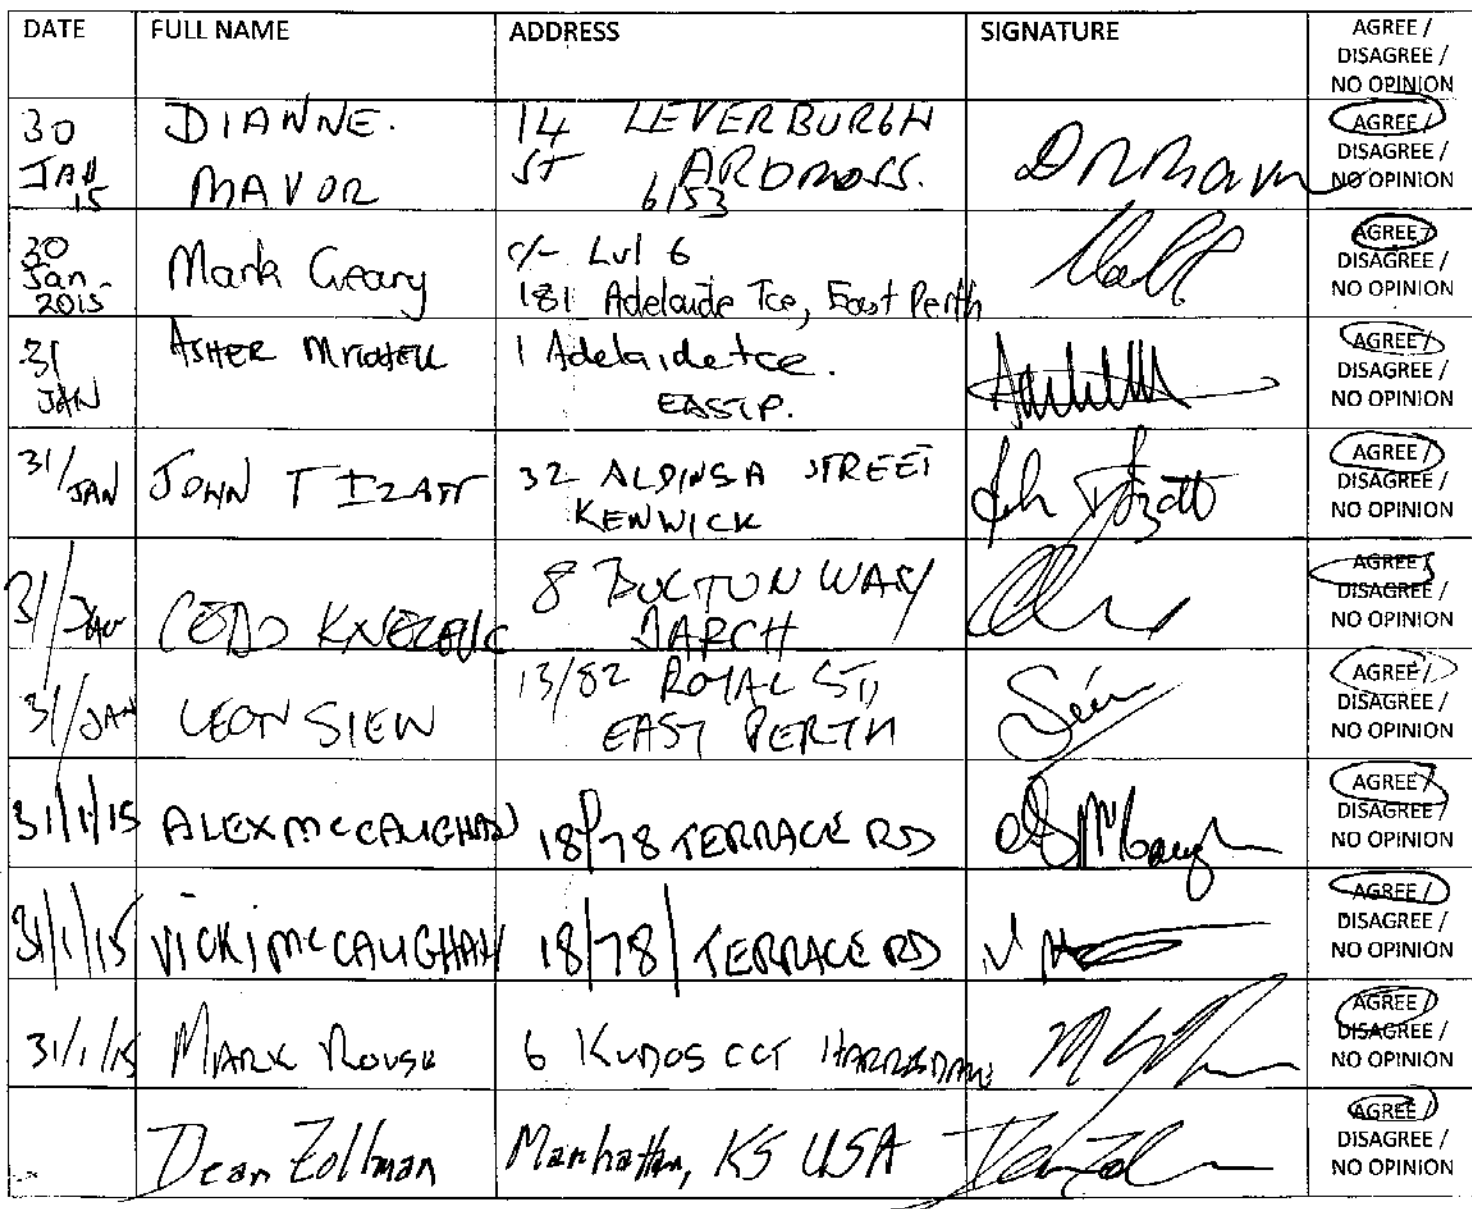 DATE FULL NAME ADDRESS SIGNATURE AGREE /
DISAGREE /
NO OPINION
30 DIANNE. 14 LEVERBURGH AGREE /
JAN MAVOR ST ARDROSS. DISAGREE /
15 6153 NO OPINION
30 Mark Geary c/- Lvl 6 AGREE /
Jan- 181 Adelaide Tce, East Perth DISAGREE /
2015 NO OPINION
31 ASHER MITCHELL 1 Adelaide tce. AGREE /
JAN EAST P. DISAGREE /
NO OPINION
31/JAN JOHN T IZATT 32 ALDINGA STREET John T Izatt AGREE /
KENWICK DISAGREE /
NO OPINION
31/Jan KNEZEVIC 8 BUCTON WAY AGREE /
DARCH DISAGREE /
NO OPINION
31/JAN LEON SIEW 13/82 ROYAL ST, AGREE /
EAST PERTH DISAGREE /
NO OPINION
31/1/15 ALEX McCAUGHAN 18/78 TERRACE RD AGREE /
DISAGREE /
NO OPINION
31/1/15 VICKI McCAUGHAN 18/78/ TERRACE RD AGREE /
DISAGREE /
NO OPINION
31/1/15 MARK ROUSE 6 KUDOS CCT HARRISDALE AGREE /
DISAGREE /
NO OPINION
Dean Zollman Manhattan, KS USA AGREE /
DISAGREE /
NO OPINION